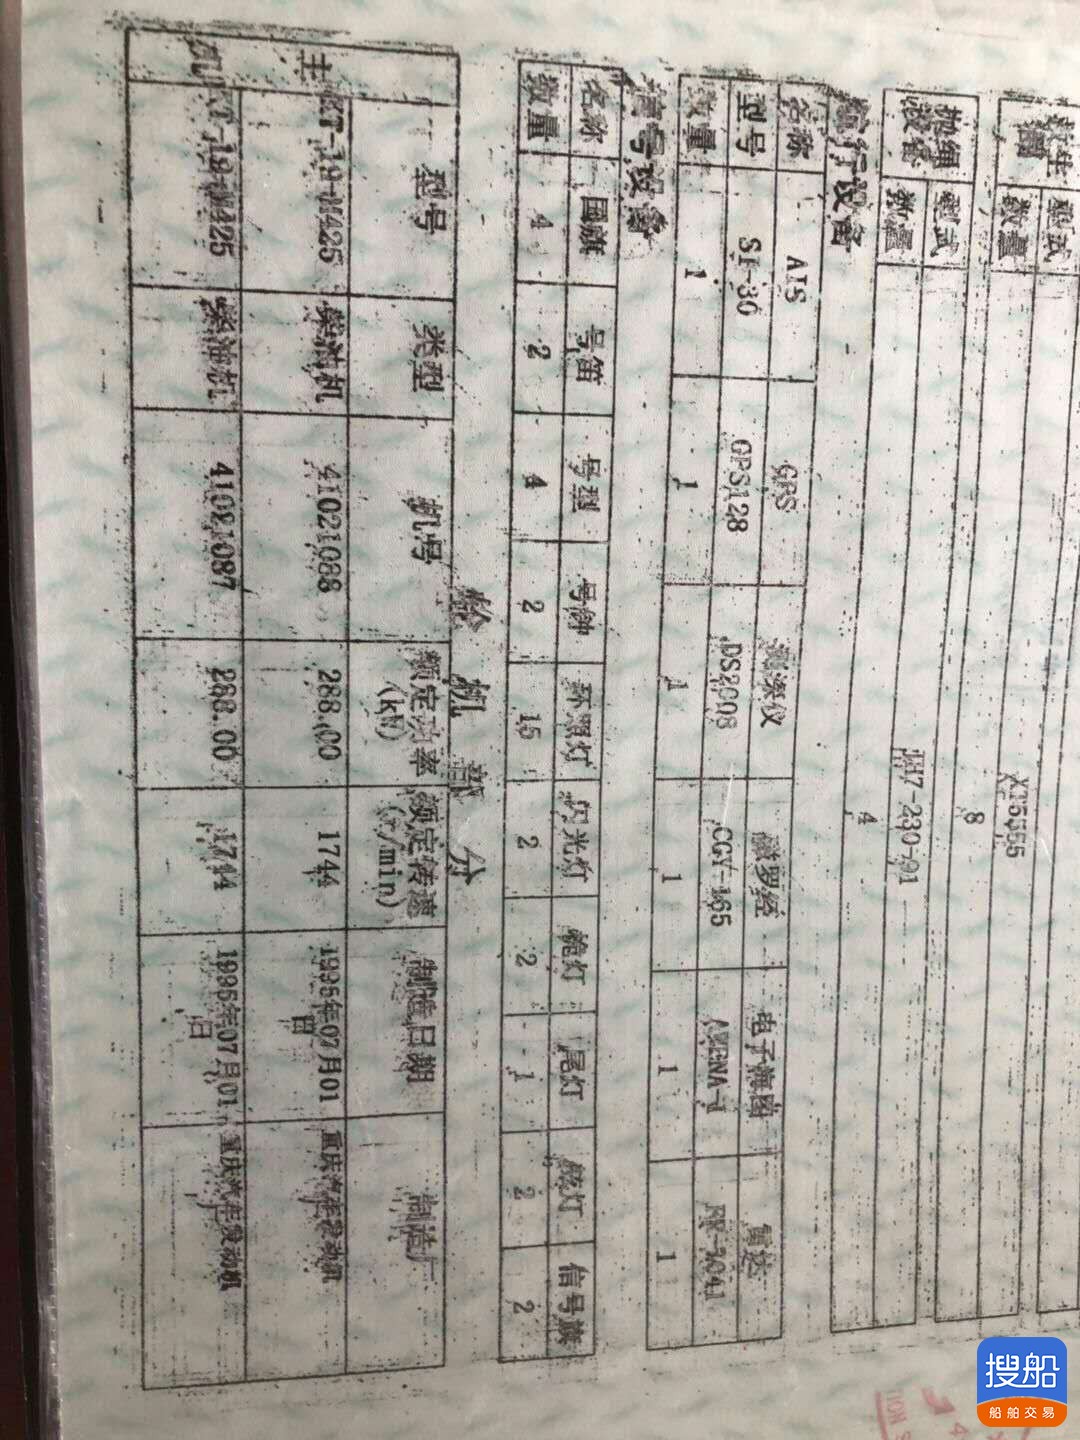 救生
型式
X15555
数量
8
抛绳设备
型式
HH7-230-91
数量
4
航行设备
名称 AIS GPS 测深仪 磁罗经 电子海图 雷达
型号 SI-30 GPS128 DS2008 CGY-165
数量 1 1 1 1 1 1
信号设备
名称 国旗 号笛 号型 号钟 环照灯 闪光灯 桅灯 尾灯 舷灯 信号旗
数量 4 2 4 2 15 2 2 1 2 2
轮机部分
型号 类型 机号 额定功率(kW) 额定转速(r/min) 制造日期 制造厂
主机
KT-19-M425 柴油机 41021088 288.00 1744 1995年07月01日 重庆汽车发动机
KT-19-M425 柴油机 41021087 288.00 1744 1995年07月01日 重庆汽车发动机
搜船
船舶交易